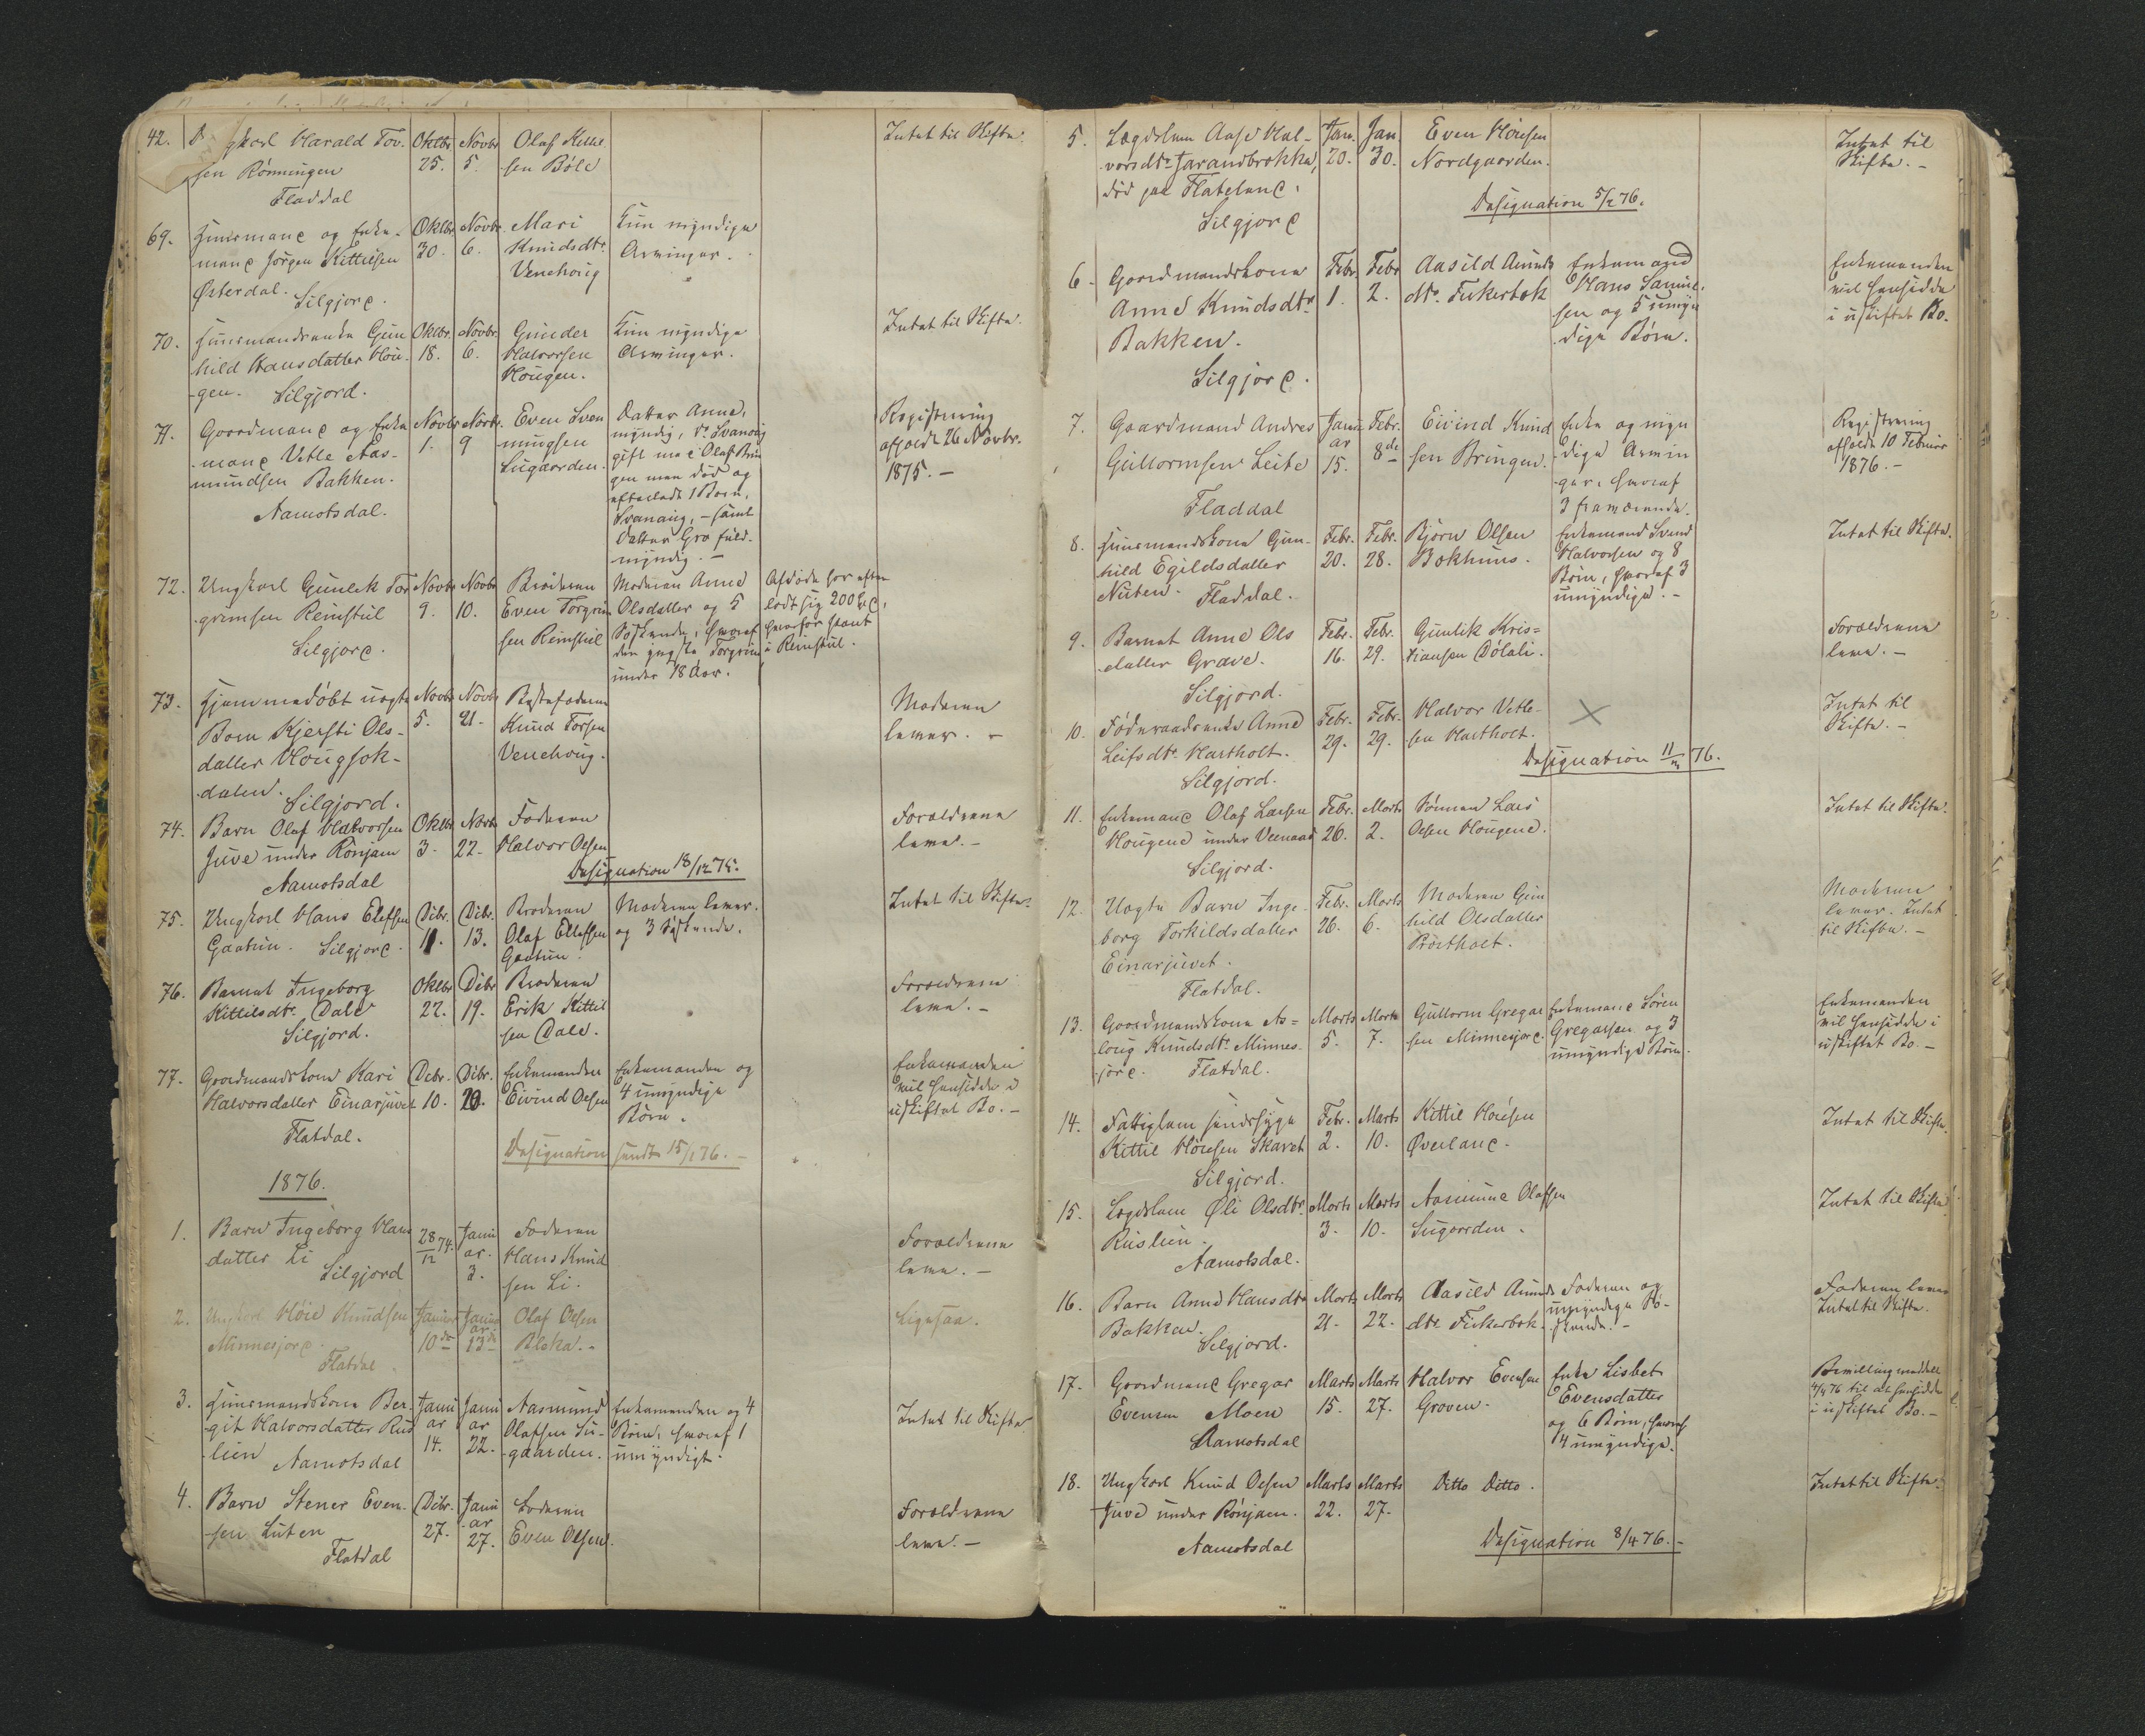 42.
Harald Tov-
sen Rønningen
Fladdal
Oktbr
25.
Novbr
5.
Olaf
sen Bøle
Intet til Skifte.
69. Huusmand og Enke-
mand Jørgen Kittilsen
Østerdal.
Siljord.
Oktbr.
30.
Novbr.
6.
Mari
Knudsdtr
Venehoug
Kun myndige
Arvinger.
70. Huusmandsenke Gun
hild Hansdatter Hou-
gen. Siljord.
Oktbr.
18.
Novbr.
6.
Gunder
Halvorsen
Hougen.
Kun myndige
Arvinger.
Intet til Skifte.
71. Gaardmand og Enke
mand Vetle Aas-
mundsen Bakken.
Aamotsdal.
Novbr
1.
Novbr.
9
Even Sven
nungsen
Lugaarden.
Datter Anne,
myndig, Do Svanaug
gift med Olaf Brin
gen men død og
efterladt 1 Barn,
Svanaug, - samt
Datter Gro fuld-
myndig. -
Registrering
afholdt 26 Novbr.
1875. -
72. Ungkarl Gunlek Tor
grimsen Reinstul
Siljord.
Novbr
9.
Novbr
10.
Broderen
Even Torgrim
sen Reinstul
Moderen Anne
Olsdatter og 5
Søskende, hvoraf
den yngste Torgrim
under 18 Aar.
Afdøde har efter
ladt sig 200
hvorfor Pant
i Reinstul.
73. Hjemmedøbt uægte
Barn Kjersti Ols-
datter Hougsok-
dalen.
Siljord.
Novbr
5.
Novbr
21.
Bestefaderen
Knud Torsen
Venehoug.
Moderen
lever. -
74. Barn Olaf Halvorsen
Juve under Rønjam
Aamotsdal
Oktbr
3.
Novbr
22.
Faderen
Halvor Olsen
Designation 18/12 75.
Forældrene
leve. -
75. Ungkarl Hans Eleffsen
Gaatun. Siljord.
Dcbr.
11.
Dcbr.
13.
Broderen
Olaf Elleffsen
Gaatun.
Moderen lever.
og 3 Søskende.
Intet til Skifte.
76. Barnet Ingeborg
Kittilsdtr. Dale
Siljord.
Oktbr
22.
Dcbr
19.
Broderen
Erik Kittil
sen Dale.
Forældrene
leve. -
77. Gaardmandskone Kari
Halvorsdatter Einarjuvet
Flatdal.
Dcbr.
10.
Dcbr.
20.
Enkemanden
Eivind Olsen
Enkemanden og
4 umyndige
Børn.
Enkemanden
vil hensidde i
uskiftet Bo. -
Designation sendt 15/1 76. -
1876.
1. Barn Ingeborg Hans
datter Li
Siljord
28/12 74.
Janu
ar.
3.
Faderen
Hans Knud
sen Li.
Forældrene
leve. -
2. Ungkarl Høie Knudsen
Minnesjord.
Flatdal.
Januar
10de
Janu
ar
13de
Olaf Olsen
Bleka. -
Ligesaa.
3. Huusmandskone Ber-
git Halvorsdatter Rus
lien Aamotsdal
Janu
ar
14.
Janu
ar
22.
Aasmund
Olafsen Su-
gaarden.
Enkemanden og 4
Børn, hvoraf 1
umyndigt.
Intet til Skifte.
4. Barn Stener Even-
sen Luten
Flatdal
Dcbr.
27.
Janu
ar
27.
Faderen
Even Olsen.
Forældrene
leve. -
5. Lægdslem Aase Hal-
vorsdtr. Jarandbrokka,
død paa Flateland.
Siljord
Jan.
20.
Jan
30.
Even Høiesen
Nordgaarden.
Intet til
Skifte. -
Designation 5/2 76.
6. Gaardmandskone
Anne Knudsdtr
Bakken.
Siljord.
Febr
1.
Febr
2.
Aasild Amunds
dtr. Fikerbok
Enkemand
Hans Samuel
sen og 5 umyn
dige Børn.
Enkemanden
vil hensidde
i uskiftet Bo.
7. Gaardmand Andres
Gullormsen Leite
Fladdal
Janu
ar
15.
Febr.
8de
Eivind Knud
sen Bringen.
Enke og myn
dige Arvin
ger, hvoraf
3 fraværende.
Registrering
afholdt 10 Februar
1876. -
8. Huusmandskone Gun-
hild Egildsdatter
Nuten. Fladdal.
Febr.
20.
Febr.
28.
Bjørn Olsen
Bokhuus.
Enkemand Svend
Halvorsen og 8
Børn, hvoraf 3
umyndige. -
Intet til Skifte.
9. Barnet Anne Ols
datter Grave.
Siljord.
Febr.
16.
Febr.
29.
Gunlik Kris=
tiansen Dølali.
Forældrene
leve. -
10. Føderaadsenke Anne
Leifsdtr. Hartholt.
Siljord.
Febr.
29.
Febr.
29.
Halvor Vetle-
sen Hartholt.
Intet til
Skifte. -
Designation 11/m 76.
11. Enkemand Olaf Larsen
Hougene under Veenaas
Siljord.
Febr.
26.
Marts
2.
Sønnen Lars
Olsen Hougene.
Intet til Skifte.
12. Uægte Barn Inge-
borg Torkildsdatter
Einarjuvet.
Flatdal.
Febr.
26.
Marts
6.
Moderen Gun
hild Olsdatter
Moderen
lever. Intet
til Skifte. -
13. Gaardmandskone As=
loug Knudsdtr. Minnes-
jord. Flatdal.
Marts
5.
Marts
7.
Gullorm Gregar
sen Minnesjord.
Enkemand Søren
Gregarsen og 3
umyndige Børn.
Enkemanden
vil hensidde i
uskiftet Bo. -
14. Fattiglem sindssyge
Kittil Høiesen Skaret
Siljord.
Febr.
2.
Marts
10.
Kittil Høiesen
Øverland.
Intet til Skifte.
15. Lægdslem Øli Olsdtr.
Ruslien.
Aamotsdal.
Marts
3.
Marts
10.
Aasmund Olafsen
Sugaarden.
Intet til Skifte.
16. Barn Anne Hansdtr
Bakken.
Siljord.
Marts
21.
Marts
22.
Aasild Aunds
dtr Fikerbok.
Faderen og
umyndige Sø-
skende. -
Faderen lever
Intet til Skifte.
17. Gaardmand Gregar
Evensen Moen
Aamotsdal
Marts
15.
Marts
27.
Halvor Evensen
Groven.
Enke Lisbet
Evensdatter
og 6 Børn, hvoraf
4 umyndige.
Bevilling meddelt
4/4 76 til at hensidde
i uskiftet Bo. -
18. Ungkarl Knud Olsen
Juve under Rønjam.
Aamotsdal
Marts
22.
Marts
27.
Ditto Ditto.
Intet til Skifte.
Designation 8/4 76. -